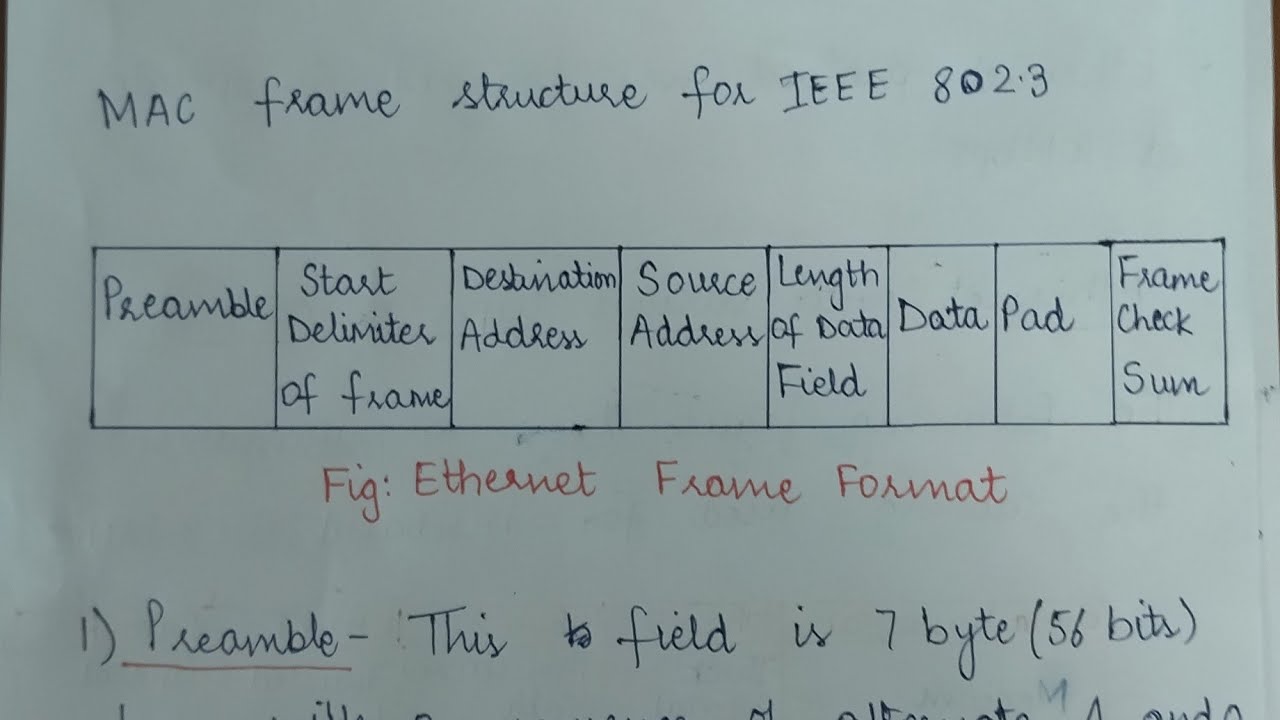 MAC frame structure for IEEE 802.3
Preamble
Start
Delimiter
Of frame
Destination
Address
Source
Address
Length
Of Data
Field
Data
Pad
Frame
Check
Sum
Fig: Ethernet Frame Format
1) Preamble - This field is 7 byte (56 bits)
of alternate 1 and 0